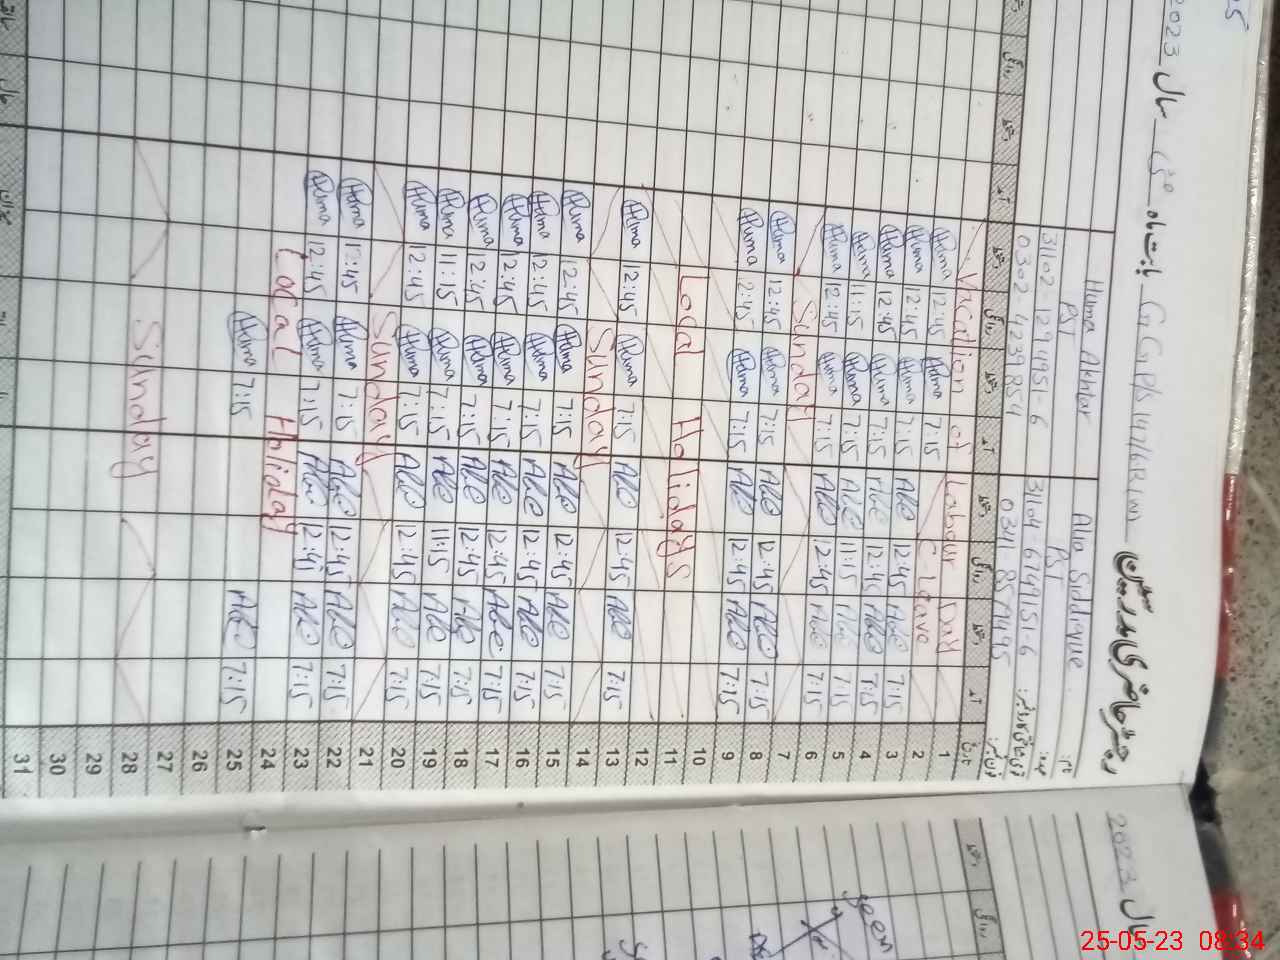 رجسٹر حاضری مدرسین GGPS 147/6R(W) بابت ماہ مئی سال 2023
نام: Alia Siddique Huma Akhtar
عہدہ: PST PST
31104-6749151-6 31102-1294495-6
فون نمبر: 0341 8571495 0302-4239854
تاریخ آمد دستخط روانگی دستخط آمد دستخط روانگی دستخط آمد دستخط روانگی دستخط
1 Vacation of Labour Day
2 C-Leave 7:15 Huma 12:45 Huma
3 7:15 12:45 7:15 Huma 12:45 Huma
4 7:15 12:45 7:15 Huma 12:45 Huma
5 7:15 11:15 7:15 Huma 11:15 Huma
6 7:15 12:45 7:15 Huma 12:45 Huma
7 Sunday
8 7:15 12:45 7:15 Huma 12:45 Huma
9 7:15 12:45 7:15 Huma 12:45 Huma
10
11 Local Holidays
12
13 7:15 12:45 7:15 Huma 12:45 Huma
14 Sunday
15 7:15 12:45 7:15 Huma 12:45 Huma
16 7:15 12:45 7:15 Huma 12:45 Huma
17 7:15 12:45 7:15 Huma 12:45 Huma
18 7:15 12:45 7:15 Huma 12:45 Huma
19 7:15 11:15 7:15 Huma 11:15 Huma
20 7:15 12:45 7:15 Huma 12:45 Huma
21 Sunday
22 7:15 12:45 7:15 Huma 12:45 Huma
23 7:15 12:45 7:15 Huma 12:45 Huma
24 Local Holiday
25 7:15 7:15 Huma
26
27
28 Sunday
29
30
31
سال 2023
دستخط
روانگی
25-05-23 08:34